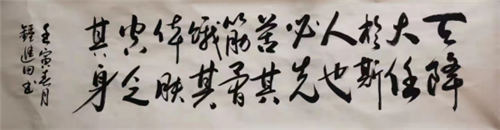 天降
大任
於斯
人也
必先
苦其
筋骨
餓其
体肤
空乏
其身
壬寅春月
鍾進田书